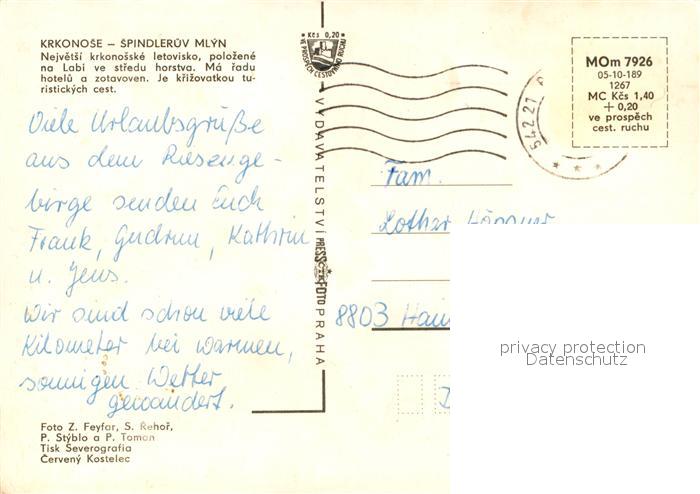 KRKONOŠE – ŠPINDLERŮV MLÝN
Největší krkonošské letovisko, položené
na Labi ve středu horstva. Má řadu
hotelů a zotavoven. Je křižovatkou tu-
ristických cest.
Viele Urlaubsgrüße
aus dem Riesenge-
birge senden Euch
Frank, Gudrun, Kathrin
u. Jens.
Wir sind schon viele
Kilometer bei warmen,
sonnigen Wetter
gewandert.
Foto Z. Feyfar, S. Řehoř,
P. Stýblo a P. Toman
Tisk Severografia
Červený Kostelec
Kčs 0,20
VE PROSPĚCH CESTOVNÍHO RUCHU
VYDAVATELSTVÍ PRESSFOTO PRAHA
ČTK
MOm 7926
05-10-189
1267
MC Kčs 1,40
+ 0,20
ve prospěch
cest. ruchu
542 21
Fam.
Lothar
8803
privacy protection
Datenschutz